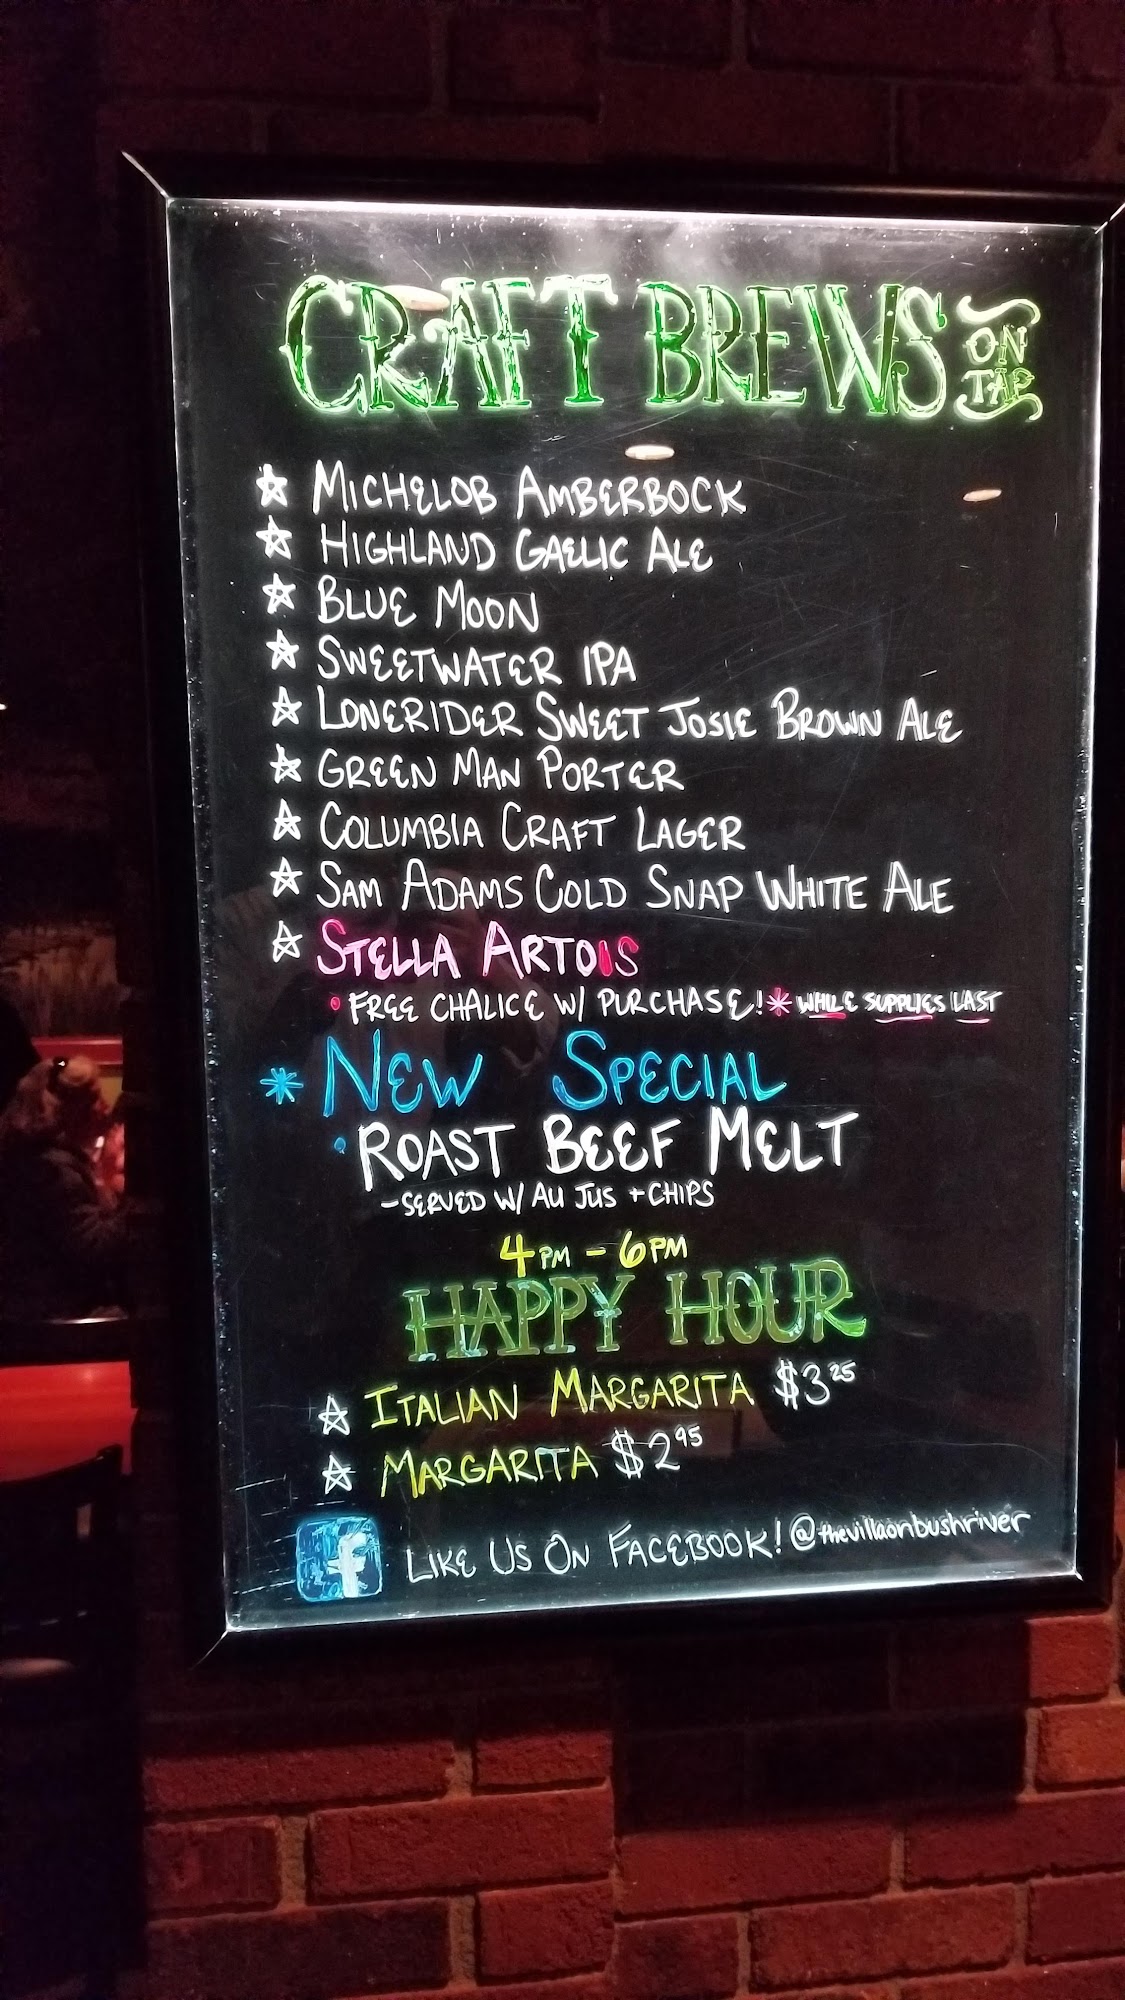 CRAFT BREWS ON TAP
☆ MICHELOB AMBERBOCK
☆ HIGHLAND GAELIC ALE
☆ BLUE MOON
☆ SWEETWATER IPA
☆ LONERIDER SWEET JOSIE BROWN ALE
☆ GREEN MAN PORTER
☆ COLUMBIA CRAFT LAGER
☆ SAM ADAMS COLD SNAP WHITE ALE
☆ STELLA ARTOIS
• FREE CHALICE W/ PURCHASE! * WHILE SUPPLIES LAST
* NEW SPECIAL
• ROAST BEEF MELT
- SERVED W/ AU JUS + CHIPS
4PM - 6PM
HAPPY HOUR
☆ ITALIAN MARGARITA $3.25
☆ MARGARITA $2.95
f LIKE US ON FACEBOOK! @thevillaonbushriver